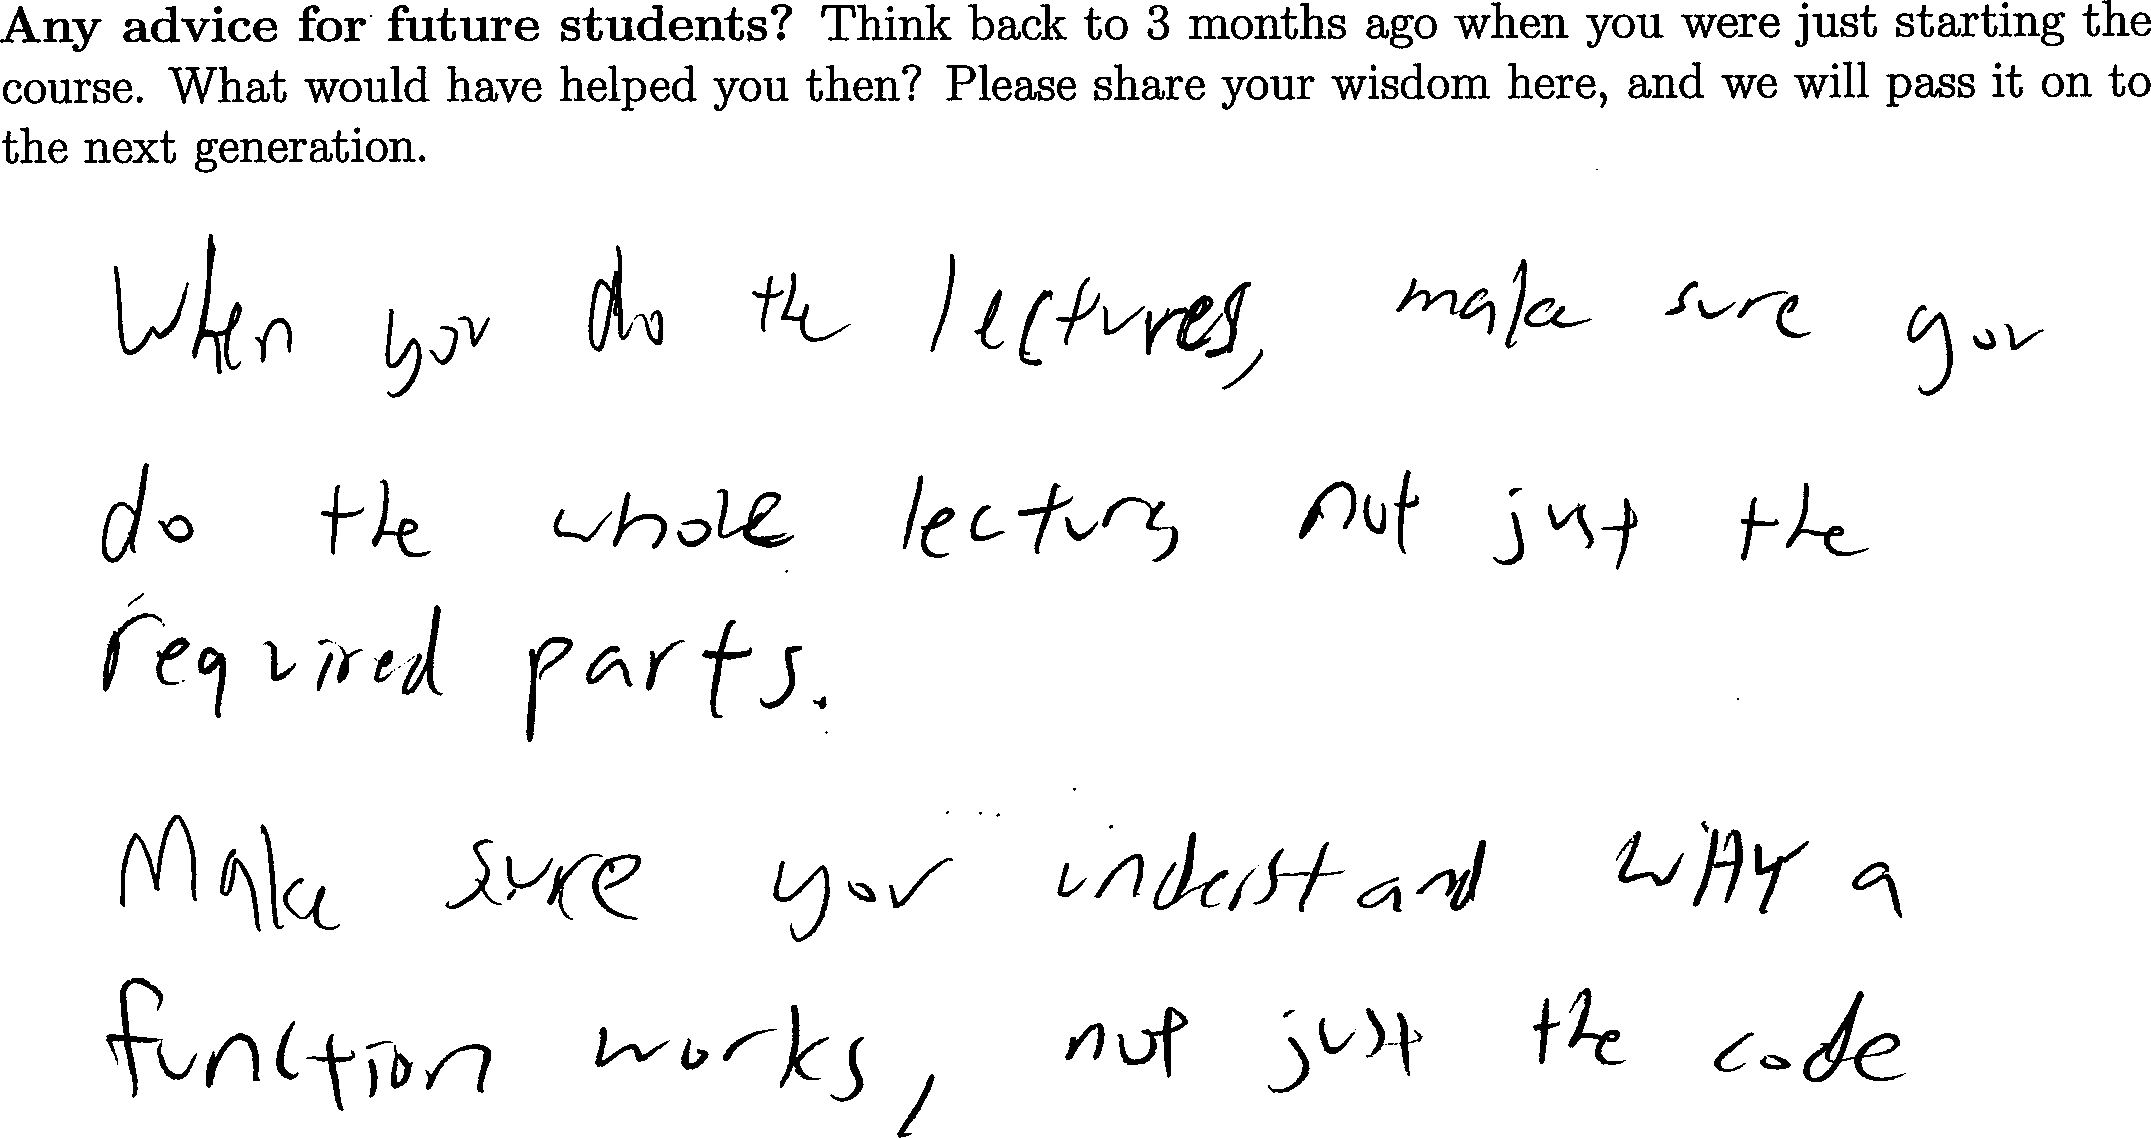 Any advice for future students? Think back to 3 months ago when you were just starting the
course. What would have helped you then? Please share your wisdom here, and we will pass it on to
the next generation.
When you do the lectures, make sure you
do the whole lecture not just the
required parts.
Make sure you understand WHY a
function works, not just the code